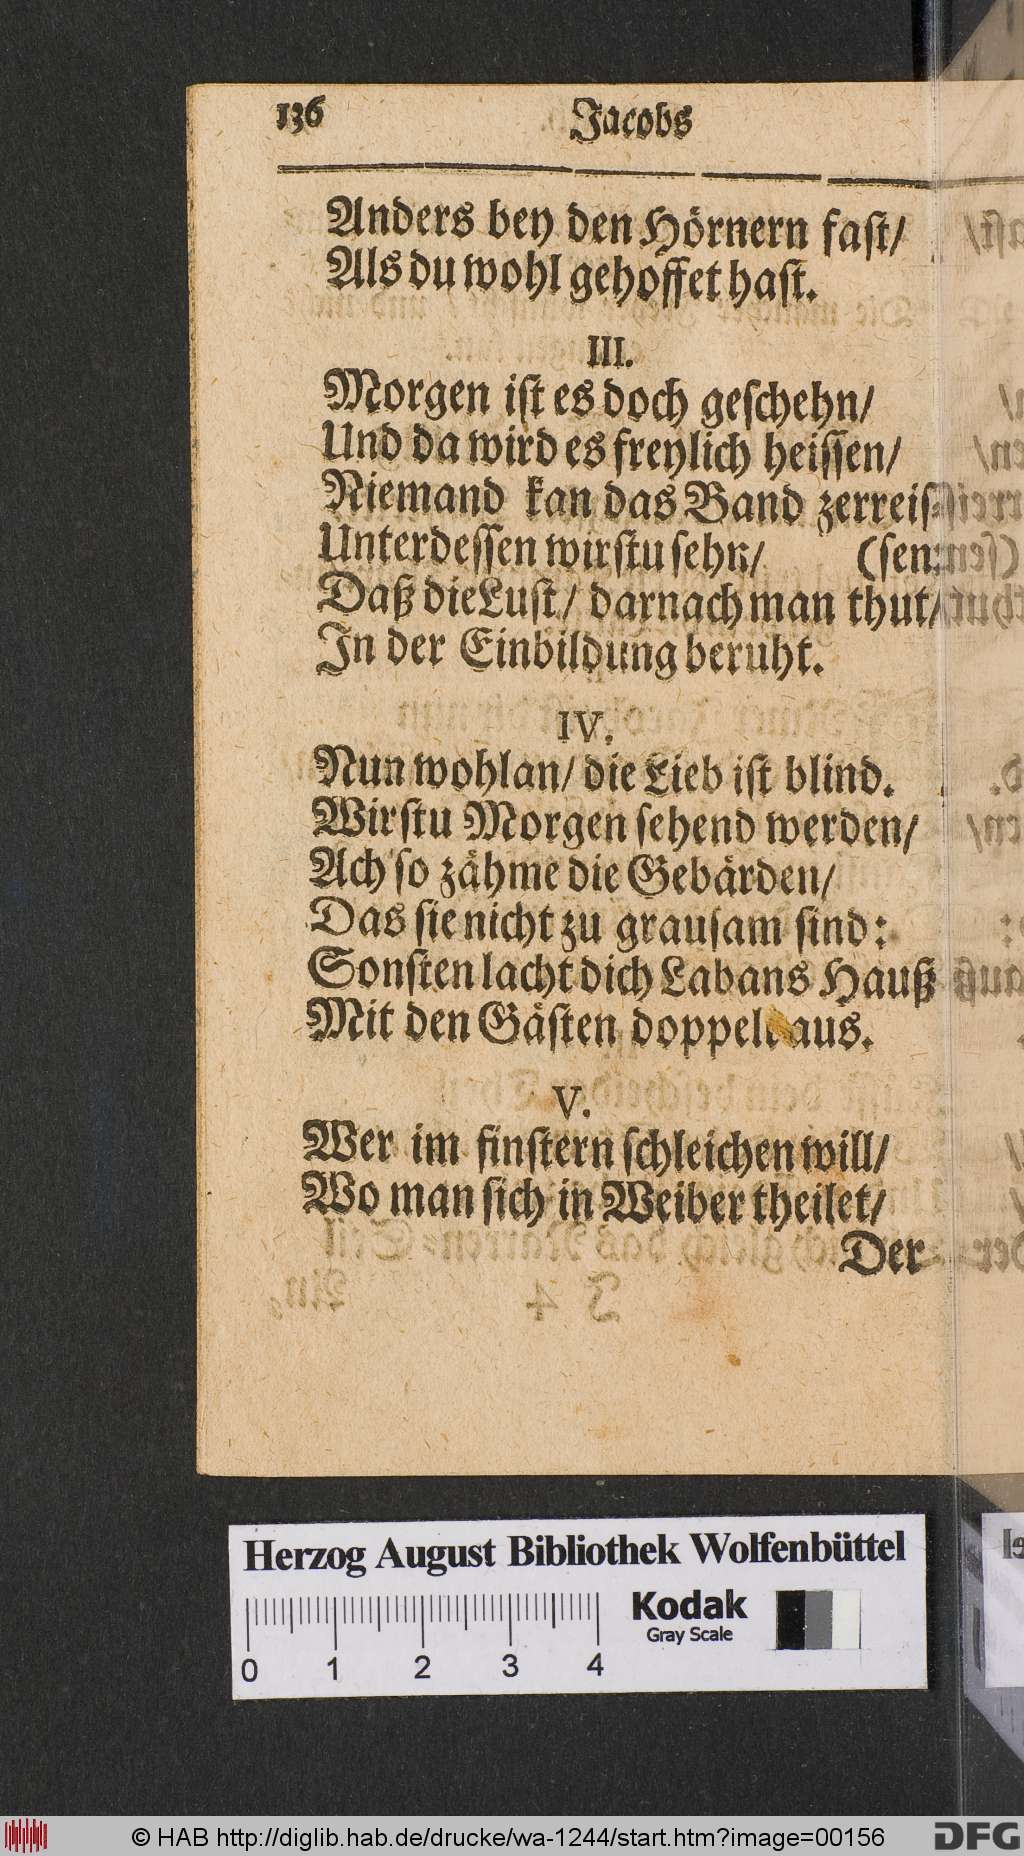 136 Jacobs
Anders bey den Hörnern fast/
Als du wohl gehoffet hast.
III.
Morgen ist es doch geschehn/
Und da wird es freylich heissen/
Niemand kan das Band zerreis=
Unterdessen wirstu sehn/ (sen:
Daß die Lust/ darnach man thut/
In der Einbildung beruht.
IV.
Nun wohlan/ die Lieb ist blind.
Wirstu Morgen sehend werden/
Ach so zähme die Gebärden/
Das sie nicht zu grausam sind:
Sonsten lacht dich Labans Hauß
Mit den Gästen doppelt aus.
V.
Wer im finstern schleichen will/
Wo man sich in Weiber theilet/
Der
Herzog August Bibliothek Wolfenbüttel
Kodak
Gray Scale
0 1 2 3 4
© HAB http://diglib.hab.de/drucke/wa-1244/start.htm?image=00156
DFG